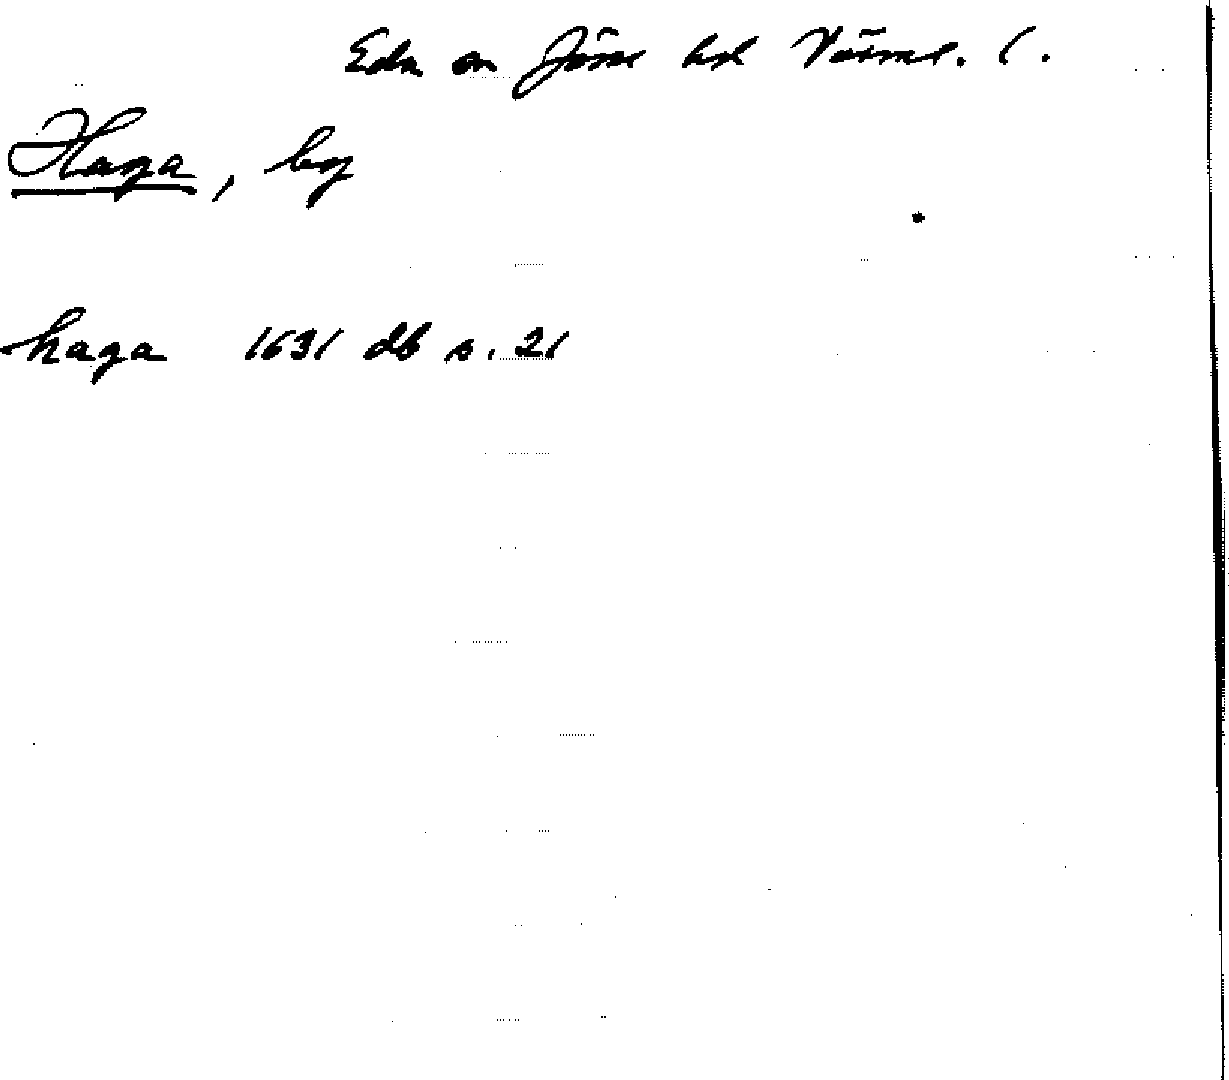 Eda sn Jösse hd Värml. l.
Haga, by
haga 1631 db s. 21